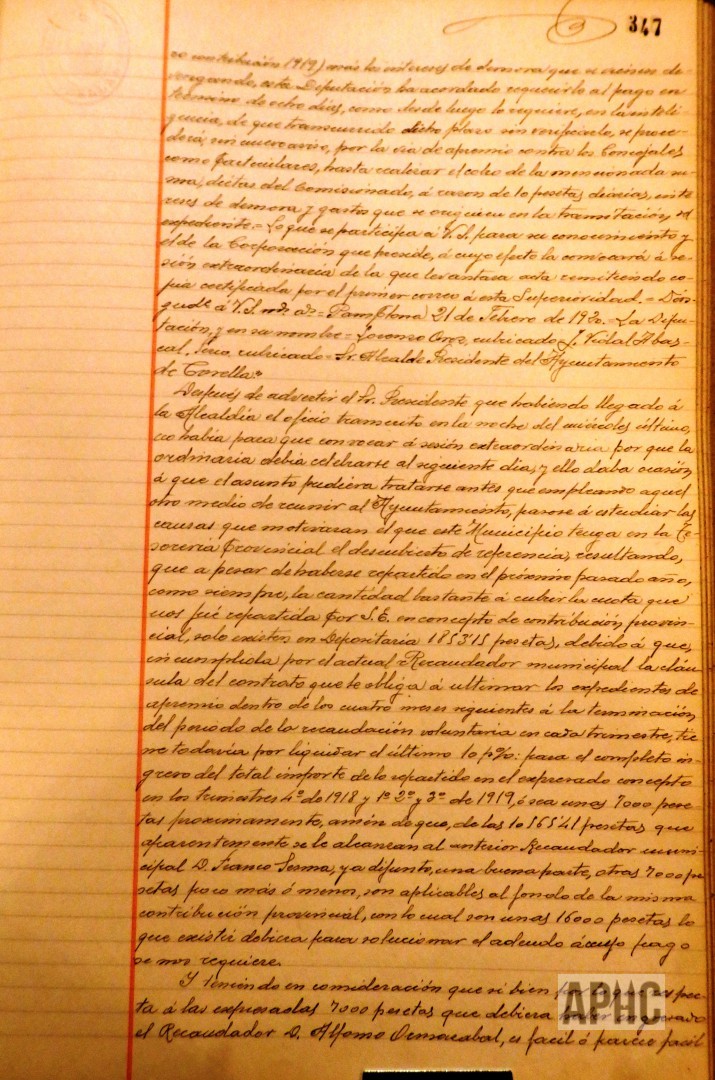 347
co contribución 1919) más los intereses de demora que se originen de-
vengando, esta Diputación ha acordado requerirle al pago en
término de ocho días, como desde luego lo requiere, en la inteli-
gencia, de que transcurrido dicho plazo sin verificarlo, se proce-
derá, sin nuevo aviso, por la vía de apremio contra los Concejales
como particulares, hasta realizar el cobro de la mencionada su-
ma, dietas del Comisionado, á razon de 10 pesetas diarias, inte-
reses de demora y gastos que se originen en la tramitación del
expediente = Lo que se participa á V.S. para su conocimiento y
el de la Corporación que preside, á cuyo efecto la convocará á se-
sión extraordinaria de la que levantara acta remitiendo co-
pia certificada por el primer correo á esta Superioridad. = Dios
gude á V.S. ms. as = Pamplona 21 de Febrero de 1920. = La Dipu-
tación, y en su nombre = Lorenzo Oroz, rubricado, J. Vidal Abas-
cal, Srio, rubricado = Sr. Alcalde Presidente del Ayuntamiento
de Corella"
Después de advertir el Sr. Presidente que habiendo llegado á
la Alcaldía el oficio transcrito en la noche del miércoles último,
no había para que convocar á sesión extraordinaria por que la
ordinaria debia celebrarse al siguiente día, y ello daba ocasión
á que el asunto pudiera tratarse antes que empleando aquel
otro medio de reunir al Ayuntamiento, pasose á estudiar las
causas que motivaran el que este Municipio tenga en la Te-
soreria Provincial el descubierto de referencia, resultando,
que a pesar de haberse repartido en el próximo pasado año,
como siempre, la cantidad bastante á cubrir la cuota que
nos fué repartida por S.E. en concepto de contribución provin-
cial, solo existen en Depositaria 1853'15 pesetas, debido á que,
incumplida por el actual Recaudador municipal la cláu-
sula del contrato que le obliga á ultimar los expedientes de
apremio dentro de los cuatro meses siguientes á la terminación
del periodo de la recaudación voluntaria en cada trimestre, tie-
ne todavia por liquidar el último 10 p%: para el completo in-
greso del total importe de lo repartido en el expresado concepto
en los trimestres 4º de 1918 y 1º 2º y 3º de 1919, ó sea unas 7000 pese-
tas proximamente, amén de que, de las 10565'41 pesetas que
aparentemente se le alcanzan al anterior Recaudador muni-
cipal D. Franco Sesma, ya difunto, una buena parte, otras 7000 pe-
setas poco más ó menos, son aplicables al fondo de la misma
contribución provincial, con lo cual son unas 16000 pesetas lo
que existir debiera para solucionar el adeudo á cuyo pago
se nos requiere.
Y teniendo en consideración que si bien por lo que respec-
ta á las expresadas 7000 pesetas que debiera haber ingresado
el Recaudador D. Alfonso, es facil ó parece facil
APHC